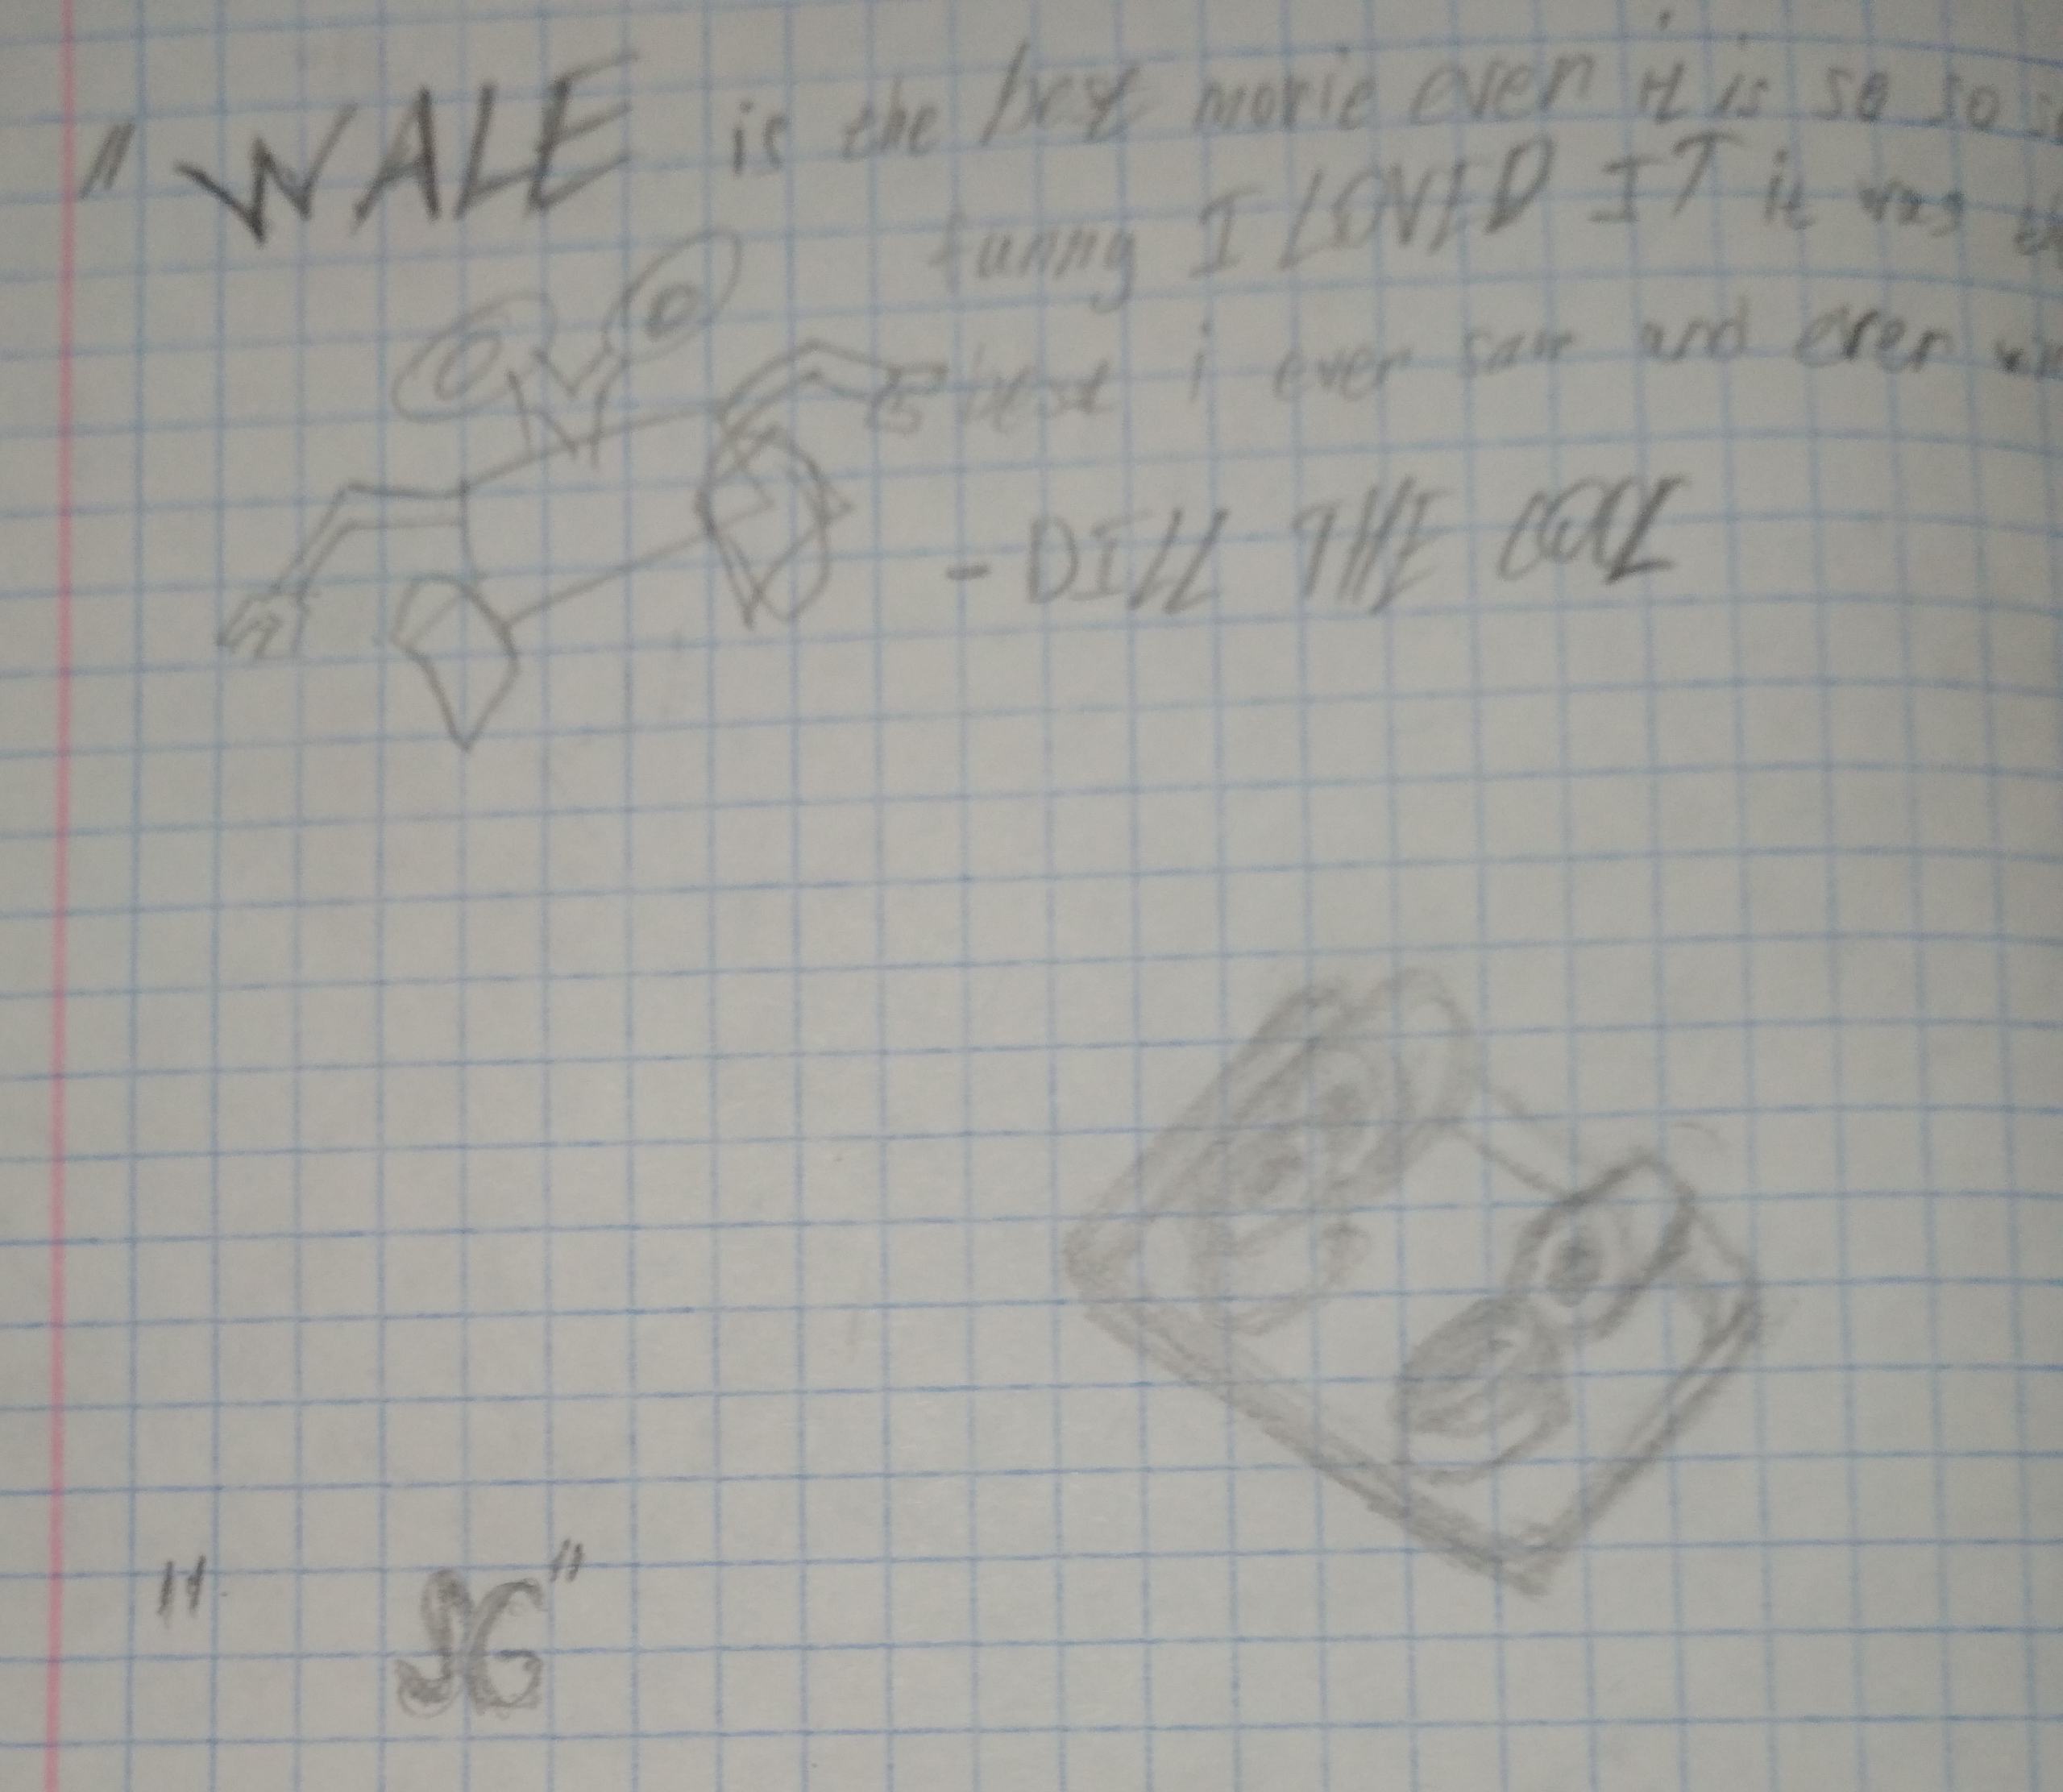 " WALE is the best movie ever it is so so
funny I LOVED IT it was
best i ever saw and ever
- DILL THE COOL
" SG "